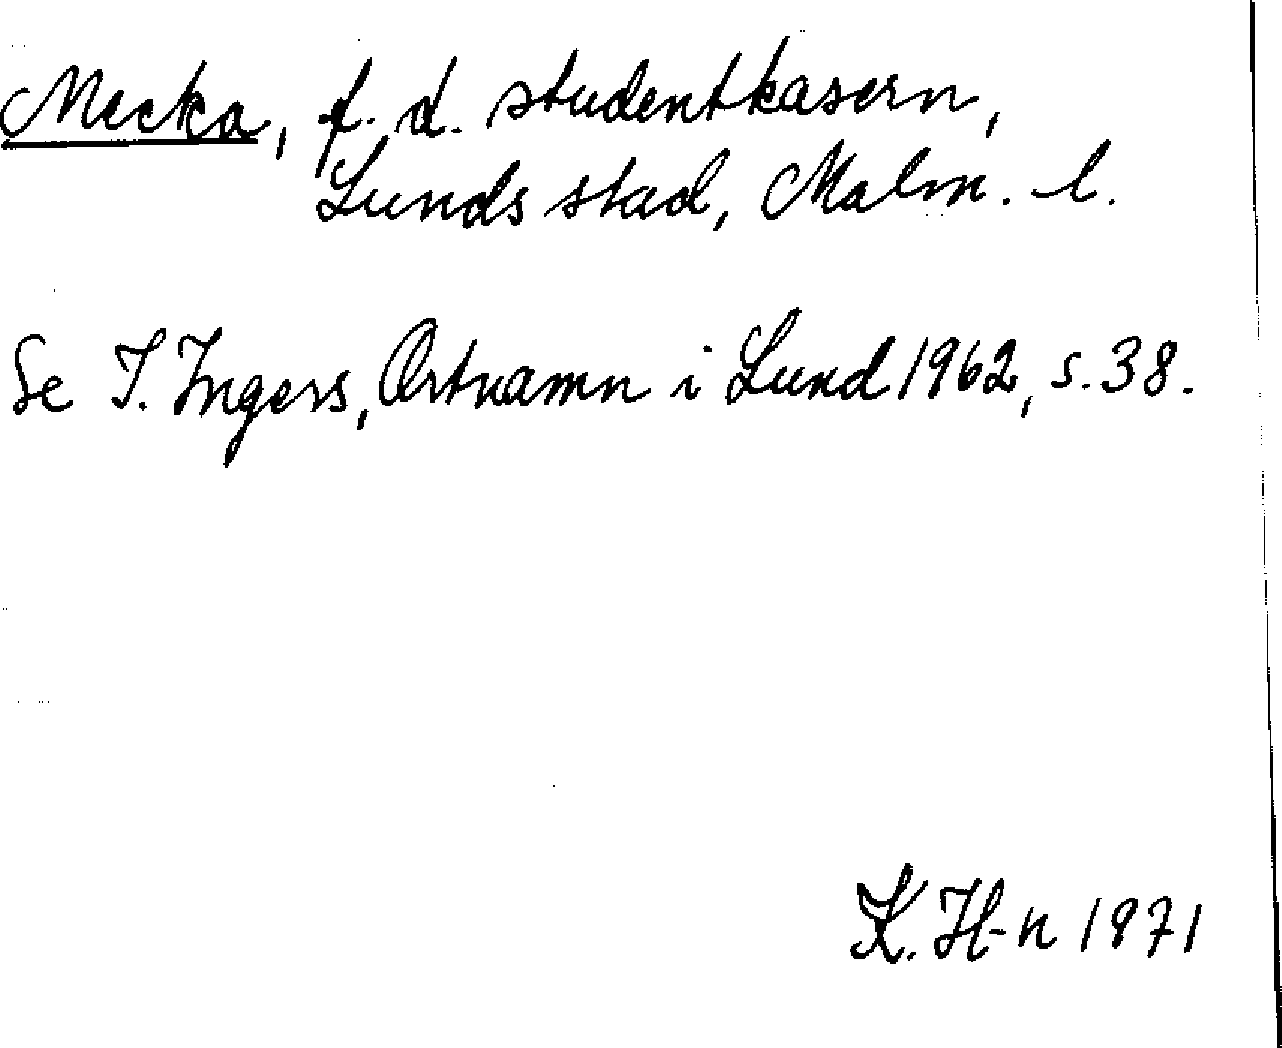 Mecka, f. d. studentkasern,
Lunds stad, Malm. l.
Se I. Ingers, Ortnamn i Lund 1962, s. 38.
K. H-n 1971